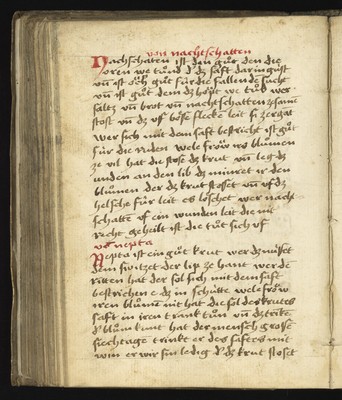 von nachtschatten
Nachschatten ist den gůt den die
oren we tůnd d' dz saft darin güst
vn̄ ist och gůt für die fallende sucht
vn̄ ist gůt dem dz hopt we tůt wer
saltz vn̄ brot vn̄ nachtschatten zesamē
stost vn̄ dz vff böse flecke leit si zergāt
wer sich mit dem saft bestricht ist gůt
für die ruden wele frow iro blůmen
ze vil hat die stose dz krut vn̄ leg dz
unden an den lib dz mīnret ir den
blůmen der dz krut stosset vn̄ vf dz
helsche für leit es löschet wer nacht
schatte vf ein wunden leit die nit
recht geheilt ist die tůt sich vf
vō nepta
Nepta ist ein gůt krut wer dz nüsset
dem switzet der lip ze hant wer dē
ritten hat der sol sich mit dem safe
bestrichen e dz in schütte wele frow
iren blůmē nit hat die sol des krutes
saft in iren trank tůn vn̄ dz trikē
d' blům kunt hat der mensch grosse
siechtage trinke er des safers mit
win er wir sin ledig d' dz krut stoset